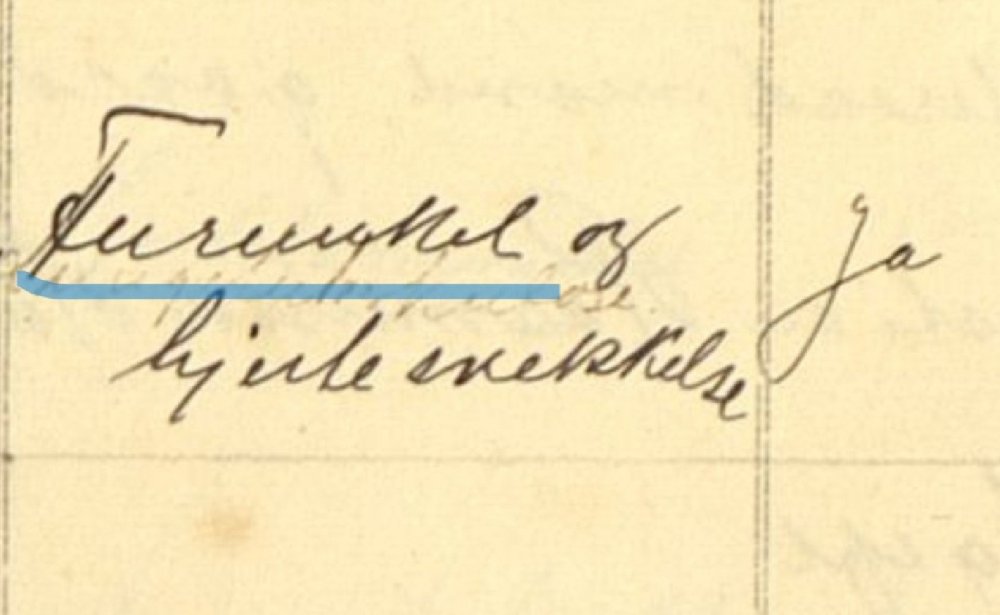 Furunkel og
hjertesvekkelse
Ja